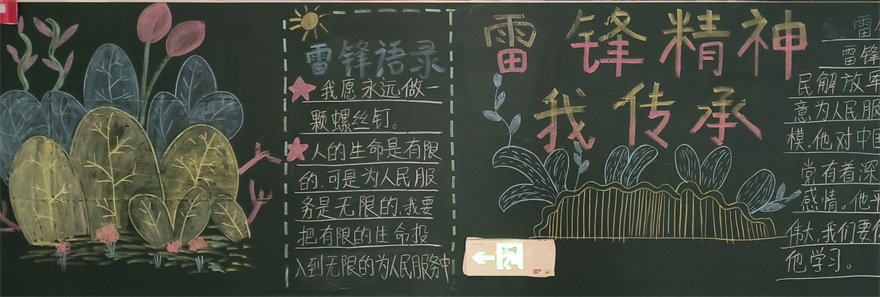 雷锋语录
我愿永远做一
颗螺丝钉。
人的生命是有限
的,可是为人民服
务是无限的,我要
把有限的生命投
入到无限的为人民服务中
雷锋精神
我传承
雷
雷锋
民解放军
意为人民服
模,他对中国
党有着深
感情。他平
伟大,我们要
他学习。